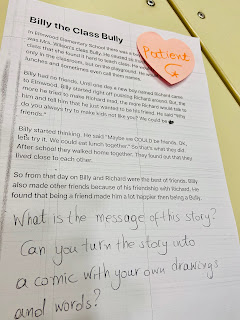 Billy the Class Bully
In Elmwood Elementary School there was a
was Mrs. Wilson's class Billy. He
class that she found it hard to teach
only in the classroom, but on the playground. He would
lunches and sometimes even call them names.
Billy had no friends. Until one day a new boy named Richard came
to Elmwood. Billy started right of pushing Richard around. But, the
more he tried to make Richard mad, the more Richard would talk to
him and tell him that he just wanted to be his friend. He said "Why
do you always try to make kids not like you? We could be
friends."
Billy started thinking. He said "Maybe we COULD be friends. Ok,
let's try it. We could eat lunch together." So that's what they did.
After school they walked home together. They found out that they
lived close to each other.
So from that day on Billy and Richard were the best of friends. Billy
also made other friends because of his friendship with Richard. He
found that being a friend made him a lot happier then being a Bully.
What is the message of this story?
Can you turn the story into
a comic with your own drawings
and words?
Patient